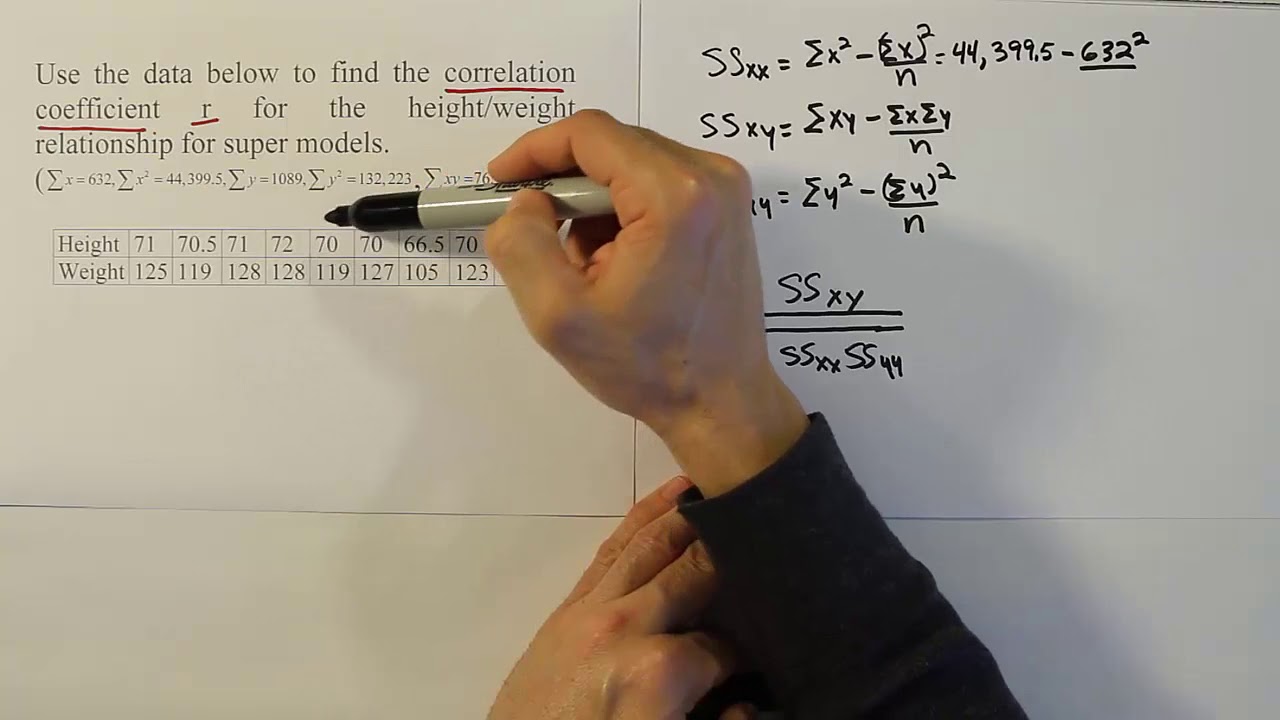 Use the data below to find the correlation
coefficient r for the height/weight
relationship for super models.
(∑x=632,∑x²=44,399.5,∑y=1089,∑y²=132,223,∑xy=76
Height 71 70.5 71 72 70 70 66.5 70
Weight 125 119 128 128 119 127 105 123
SSxx = Σx² - (Σx)²/n = 44,399.5 - 632²
SSxy = Σxy - ΣxΣy/n
= Σy² - (Σy)²/n
SSxy
SSxx SSyy